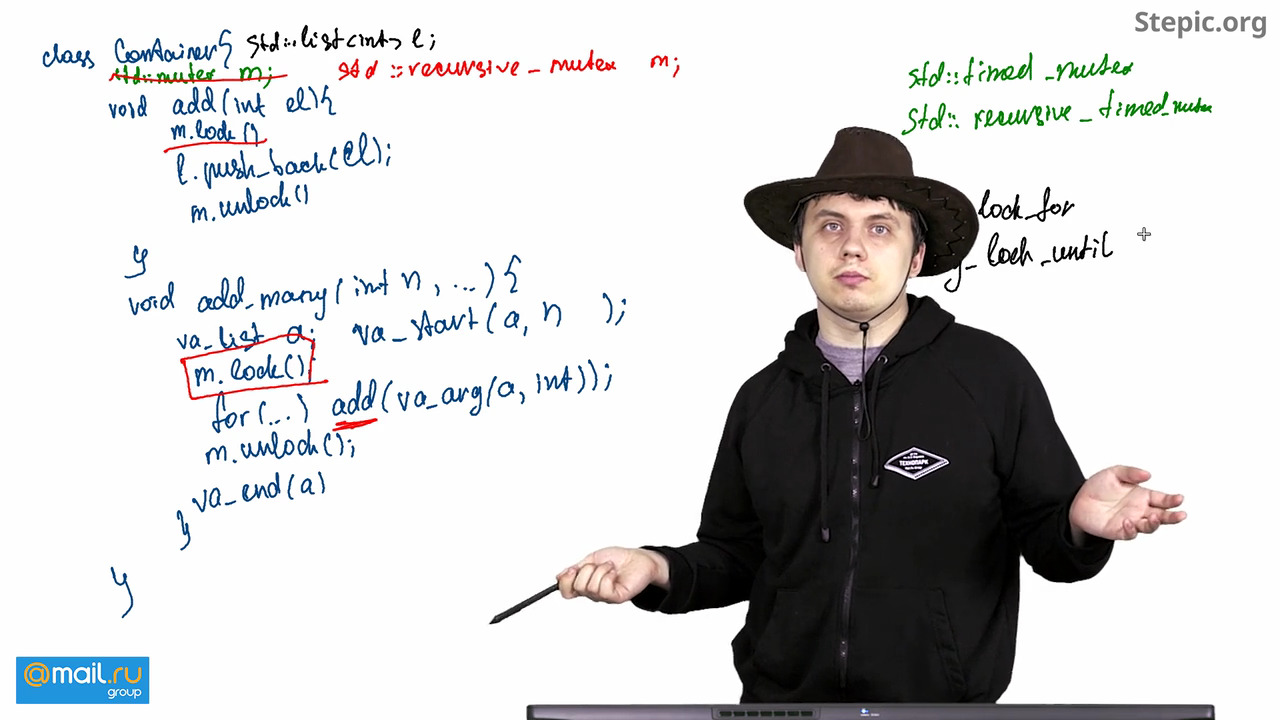 Stepic.org
class Container{ std::list<int> l;
std::mutex m; std::recursive_mutex m;
void add(int el){
m.lock()
l.push_back(el);
m.unlock()
}
void add_many(int n, ...) {
va_list a; va_start(a, n );
m.lock();
for(...) add(va_arg(a, int));
m.unlock();
va_end(a)
}
}
std::timed_mutex
std::recursive_timed_mutex
lock_for
y_lock_until
ТЕХНОПАРК
@mail.ru
group